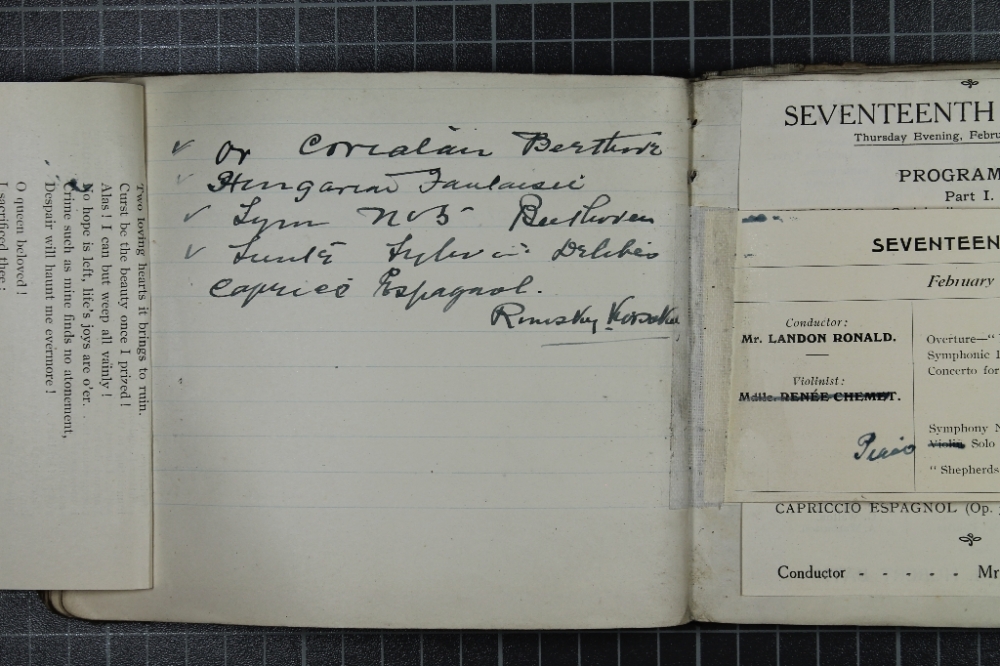 Two loving hearts it brings to ruin.
Curst be the beauty once I prized!
Alas! I can but weep all vainly!
No hope is left, life's joys are o'er.
Crime such as mine finds no atonement,
Despair will haunt me evermore!
O queen beloved!
I sacrificed thee;
✓ Or Coriolan Beethove
Hungarian Fantaisie
✓ Sym No 5 Beethoven
✓ Suite Sylvia Delibes
Caprice Espagnol.
Rimsky Korsakov
SEVENTEENTH
Thursday Evening, Febru
PROGRAM
Part I.
SEVENTEEN
February
Conductor:
Mr. LANDON RONALD.
Violinist:
Mdlle. RENÉE CHEMET.
Overture—"
Symphonic
Concerto for
Symphony N
Violin Solo
"Shepherds
CAPRICCIO ESPAGNOL (Op.
Conductor - - - - - Mr